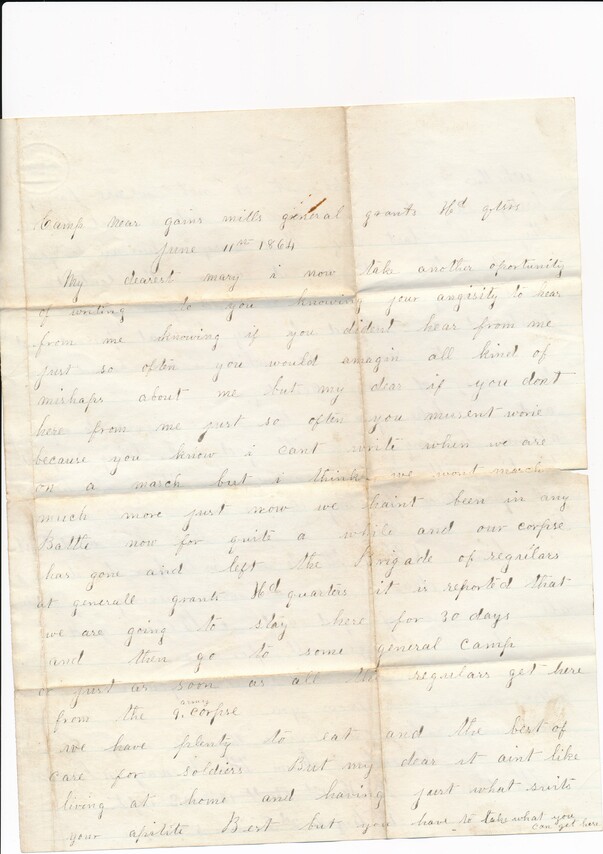 Camp near gains mills general grants Hd qtrs
June 11st 1864
My dearest mary i now take another oportunity
of writing to you knowing your angisity to hear
from me knowing if you dident hear from me
just so often you would amagin all kind of
mishaps about me but my dear if you dont
here from me just so often you musent worie
because you know i cant write when we are
on a march but i think we wont march
much more just now we haint been in any
Battle now for quite a while and our corpse
has gone and left the Brigade of regulars
at generall grants Hd quarters it is reported that
we are going to stay here for 30 days
and then go to some general camp
or just as soon as all the regulars get here
from the 9. army corpse
we have plenty to eat and the best of
care for soldiers But my dear it aint like
living at home and having just what suits
your apitite Best but you have to take what you
can get here